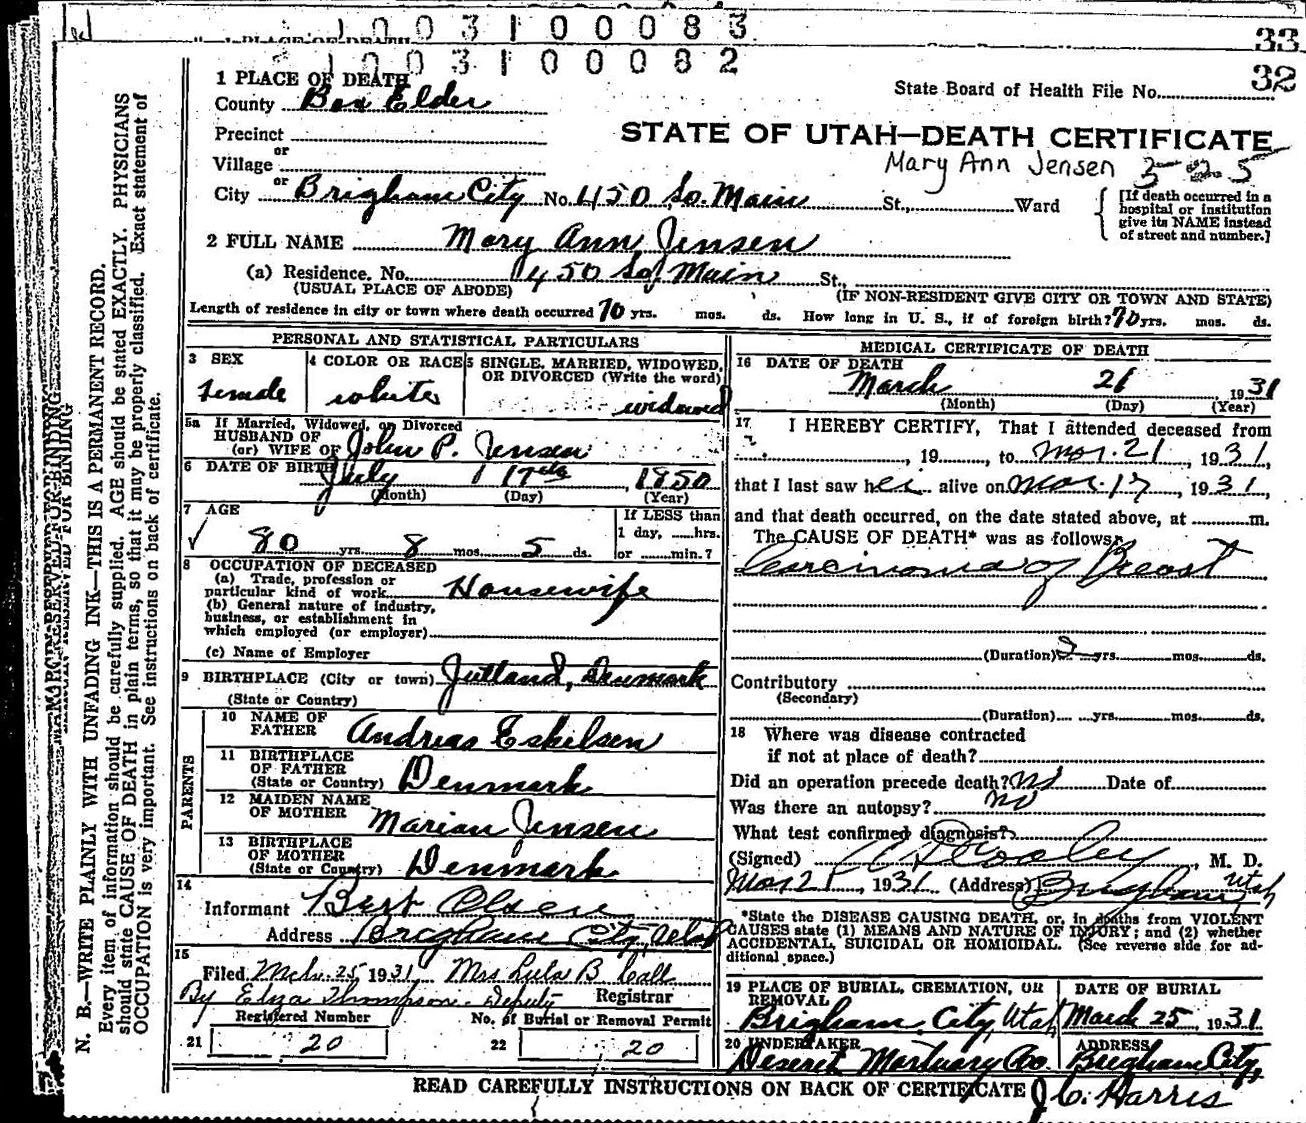 1 0 0 3 1 0 0 0 8 3
33
1 0 0 3 1 0 0 0 8 2
32
1 PLACE OF DEATH
County Box Elder
State Board of Health File No.
Precinct
or
Village
or
City Brigham City No. 450 So. Main St., Ward
STATE OF UTAH—DEATH CERTIFICATE
Mary Ann Jensen 325
[If death occurred in a
hospital or institution
give its NAME instead
of street and number.]
2 FULL NAME Mary Ann Jensen
(a) Residence. No. 450 So. Main St.,
(USUAL PLACE OF ABODE) (IF NON-RESIDENT GIVE CITY OR TOWN AND STATE)
Length of residence in city or town where death occurred 70 yrs. mos. ds. How long in U. S., if of foreign birth? 70 yrs. mos. ds.
PERSONAL AND STATISTICAL PARTICULARS
3 SEX
female
4 COLOR OR RACE
white
5 SINGLE, MARRIED, WIDOWED,
OR DIVORCED (Write the word)
widowed
5a If Married, Widowed, or Divorced
HUSBAND OF
(or) WIFE OF John P. Jensen
6 DATE OF BIRTH July 17th, 1850
(Month) (Day) (Year)
7 AGE
80 yrs. 8 mos. 5 ds.
If LESS than
1 day, hrs.
or min.?
8 OCCUPATION OF DECEASED
(a) Trade, profession or
particular kind of work Housewife
(b) General nature of industry,
business, or establishment in
which employed (or employer)
(c) Name of Employer
9 BIRTHPLACE (City or town) Jutland, Denmark
(State or Country)
PARENTS
10 NAME OF
FATHER Andreas Eskilsen
11 BIRTHPLACE
OF FATHER
(State or Country) Denmark
12 MAIDEN NAME
OF MOTHER Marian Jensen
13 BIRTHPLACE
OF MOTHER
(State or Country) Denmark
14
Informant Bert Olsen
Address Brigham City, Utah
15
Filed Mch. 25 1931 Mrs Lula B. Call
By Elza Thompson - Deputy Registrar
Registered Number No. of Burial or Removal Permit
21 20 22 20
MEDICAL CERTIFICATE OF DEATH
16 DATE OF DEATH
March 21 1931
(Month) (Day) (Year)
17 I HEREBY CERTIFY, That I attended deceased from
, 19 , to Mar. 21, 1931,
that I last saw her alive on Mar. 17, 1931,
and that death occurred, on the date stated above, at m.
The CAUSE OF DEATH* was as follows:
Carcinoma of Breast
(Duration) 2 yrs. mos. ds.
Contributory
(Secondary)
(Duration) yrs. mos. ds.
18 Where was disease contracted
if not at place of death?
Did an operation precede death? No Date of
Was there an autopsy? no
What test confirmed diagnosis?
(Signed) , M. D.
Mar 21, 1931 (Address) Brigham, Utah
*State the DISEASE CAUSING DEATH, or, in deaths from VIOLENT
CAUSES state (1) MEANS AND NATURE OF INJURY; and (2) whether
ACCIDENTAL, SUICIDAL OR HOMICIDAL. (See reverse side for ad-
ditional space.)
19 PLACE OF BURIAL, CREMATION, OR
REMOVAL
Brigham City, Utah
DATE OF BURIAL
March 25, 1931.
20 UNDERTAKER
Deseret Mortuary Co.
ADDRESS
Brigham City,
J C. Harris
READ CAREFULLY INSTRUCTIONS ON BACK OF CERTIFICATE
MARGIN RESERVED FOR BINDING
N. B.—WRITE PLAINLY WITH UNFADING INK—THIS IS A PERMANENT RECORD.
Every item of information should be carefully supplied. AGE should be stated EXACTLY. PHYSICIANS
should state CAUSE OF DEATH in plain terms, so that it may be properly classified. Exact statement of
OCCUPATION is very important. See instructions on back of certificate.